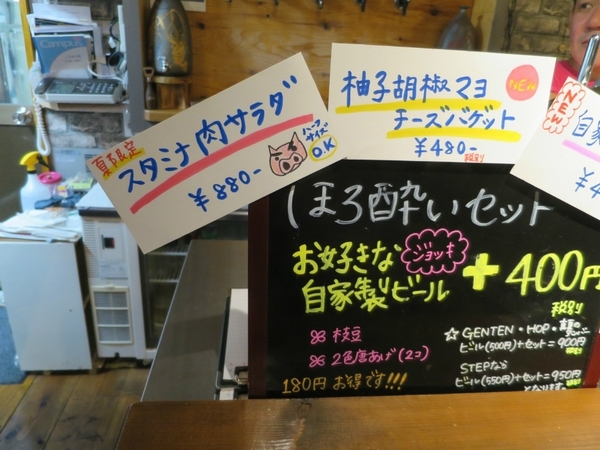 Campus
夏限定
スタミナ肉サラダ
¥880-
ハーフサイズ
O.K
柚子胡椒マヨ
NEW
チーズバゲット
¥480-
税別
NEW
自
¥4
ほろ酔いセット
お好きな
ジョッキ
自家製ビール
+400円
税別
枝豆
2色唐あげ(2コ)
180円お得です!!!
☆GENTEN・HOP・
ビール(500円)+セット=900円
税別
STEPなら
ビール(550円)+セット=950円
税別
となります。